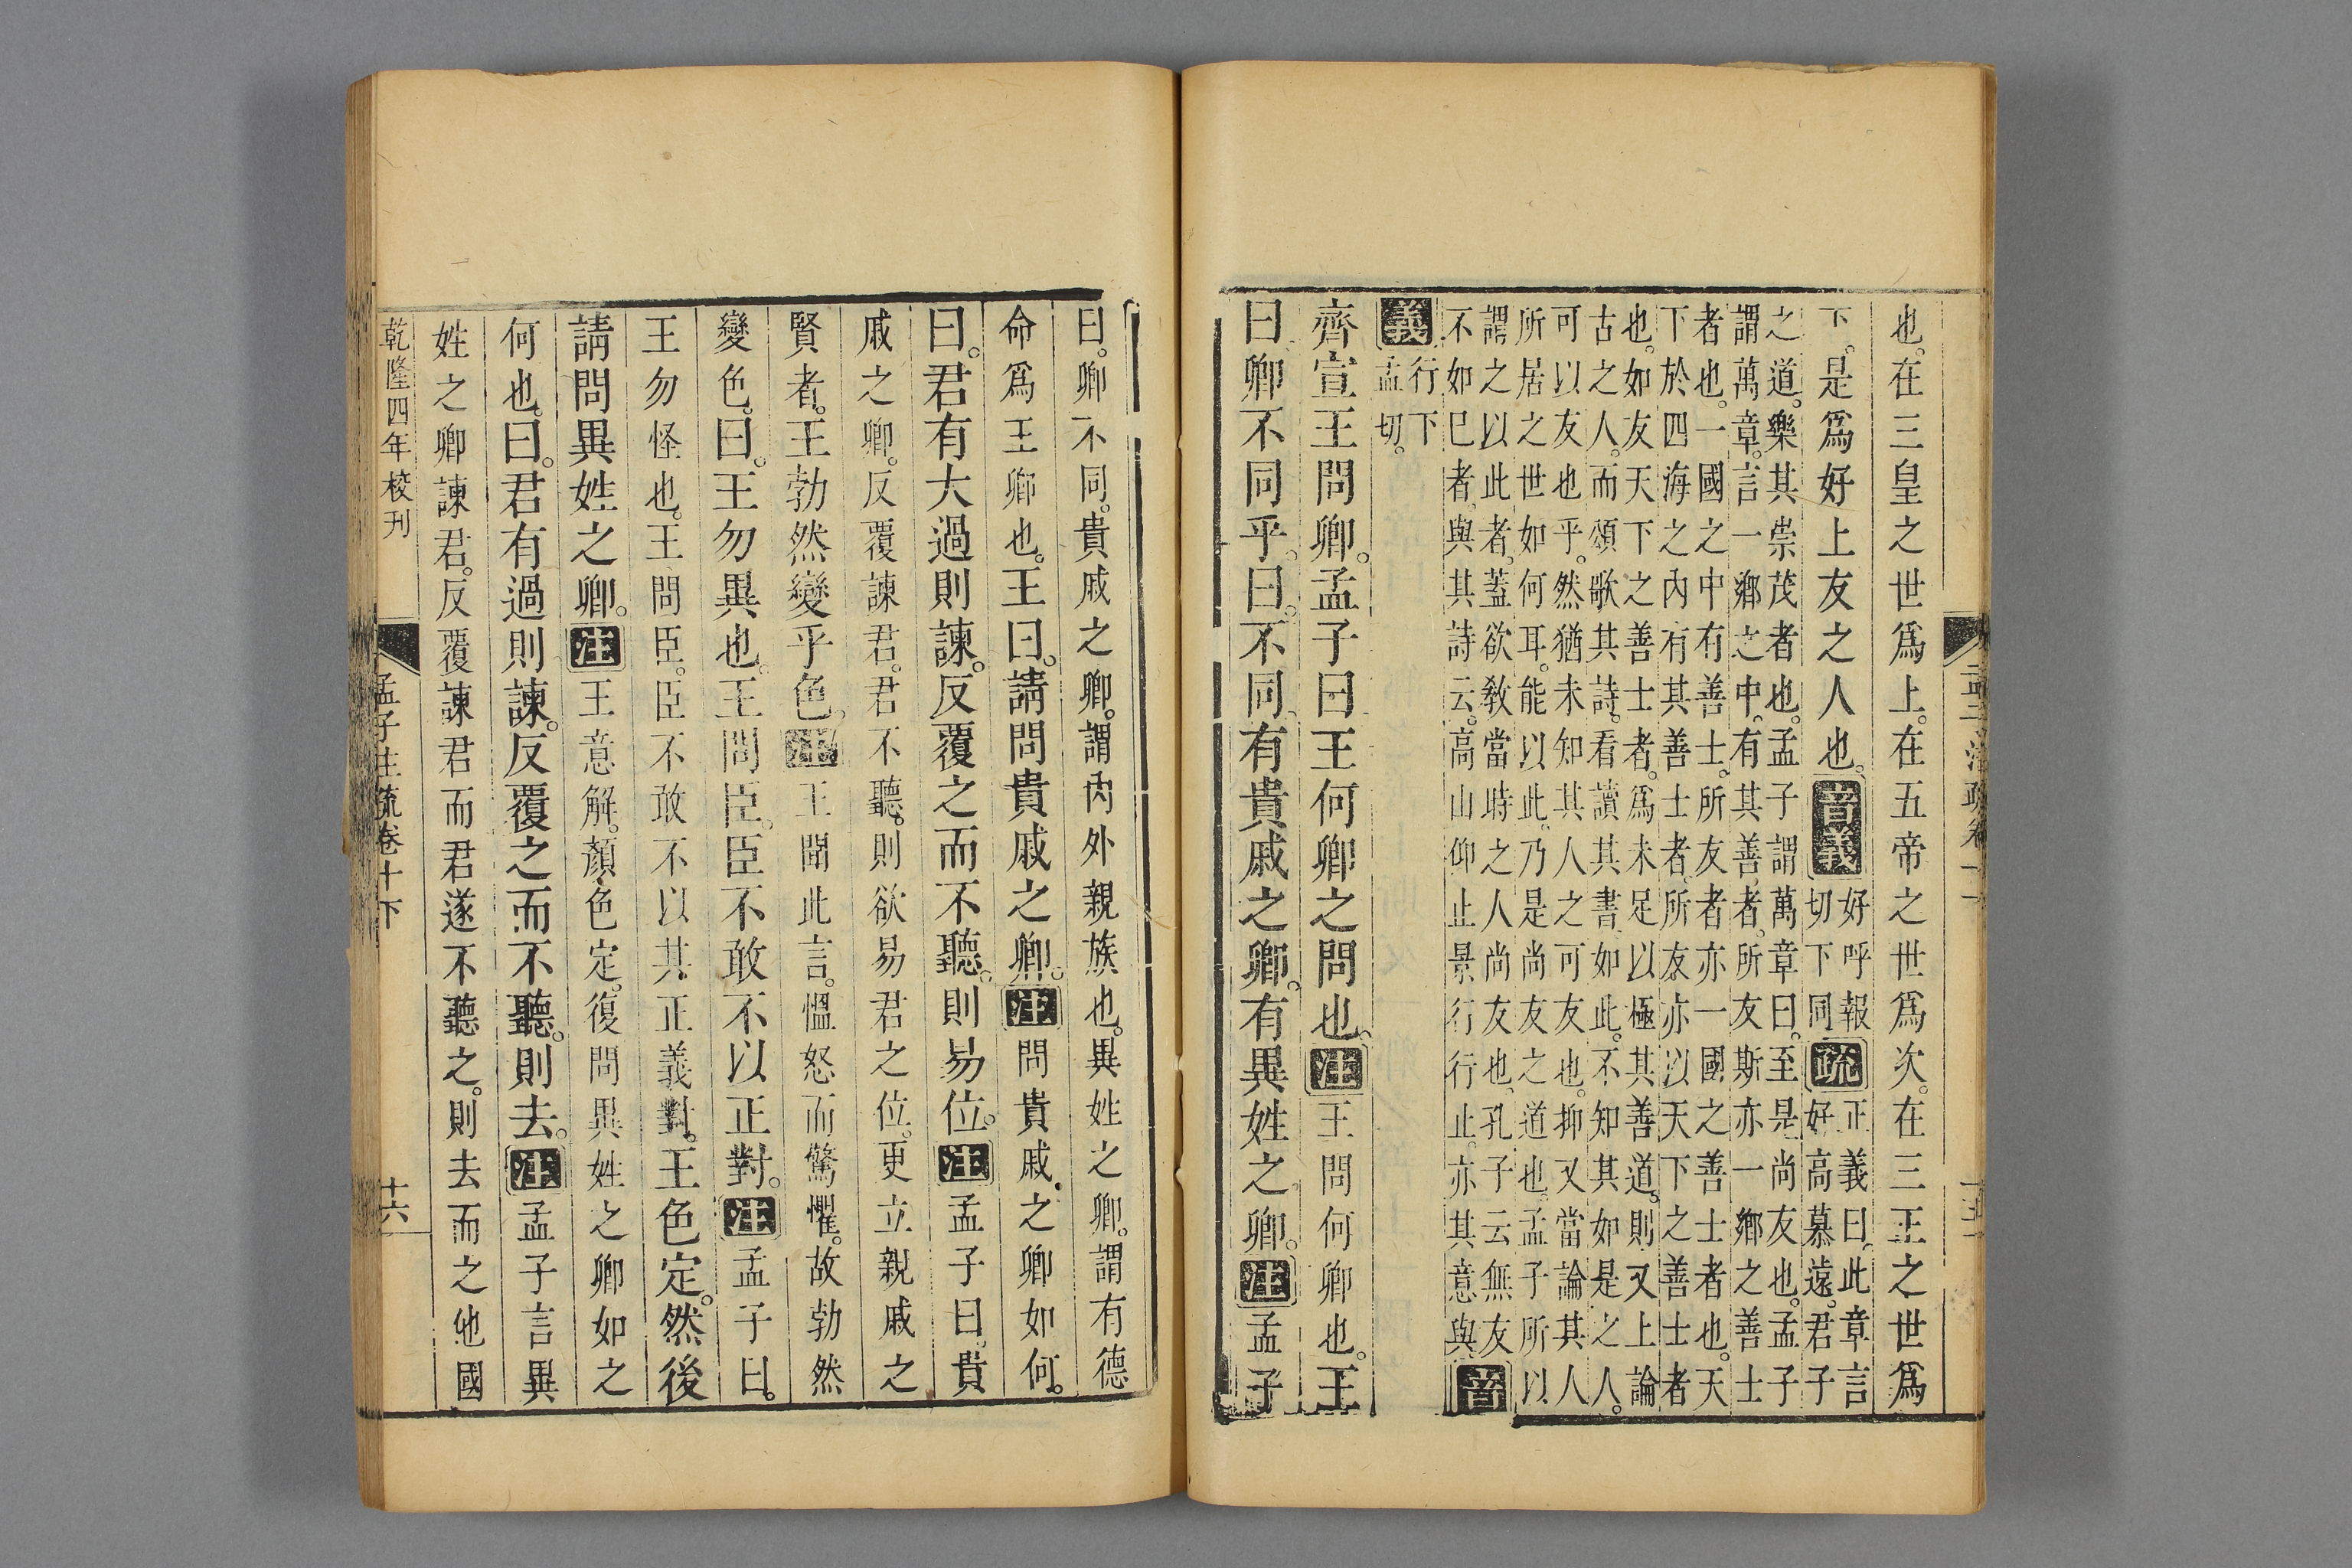 也。在三皇之世爲上。在五帝之世爲次。在三王之世爲
下。是爲好上友之人也。音義好呼報切下同疏正義曰。此章言好高慕遠。君子
之道。樂其崇茂者也。孟子謂萬章曰。至是尚友也。孟子
謂萬章。言一鄉之中。有其善者。所友斯亦一鄉之善士
者也。一國之中有善士。所友者亦一國之善士者也。天
下於四海之內有其善士者。所友亦以天下之善士者
也。如友天下之善士者。爲未足以極其善道。則又上論
古之人。而頌歌其詩。看讀其書如此。不知其如是之人。
可以友也乎。然猶未知其人之可友也。抑又當論其人
所居之世如何耳。能以此。乃是尚友之道也。孟子所以
謂之以此者。蓋欲敎當時之人尚友也。孔子云無友
不如已者。與其詩云。高山仰止。景行行止。亦其意與音
義行下孟切。
齊宣王問卿。孟子曰王何卿之問也。注王問何卿也。王
曰卿不同乎。曰。不同。有貴戚之卿。有異姓之卿。注孟子
曰。卿不同。貴戚之卿。謂內外親族也。異姓之卿。謂有德
命爲王卿也。王曰。請問貴戚之卿。注問貴戚之卿如何。
曰。君有大過則諫。反覆之而不聽。則易位。注孟子曰。貴
戚之卿。反覆諫君。君不聽。則欲易君之位。更立親戚之
賢者。王勃然變乎色。注王聞此言。慍怒而驚懼。故勃然
變色。曰。王勿異也。王問臣。臣不敢不以正對。注孟子曰。
王勿怪也。王問臣。臣不敢不以其正義對。王色定。然後
請問異姓之卿。注王意解。顏色定。復問異姓之卿如之
何也。曰。君有過則諫。反覆之而不聽。則去。注孟子言異
姓之卿諫君。反覆諫君而君遂不聽之。則去而之他國
乾隆四年校刊 孟子注疏卷十下 十六